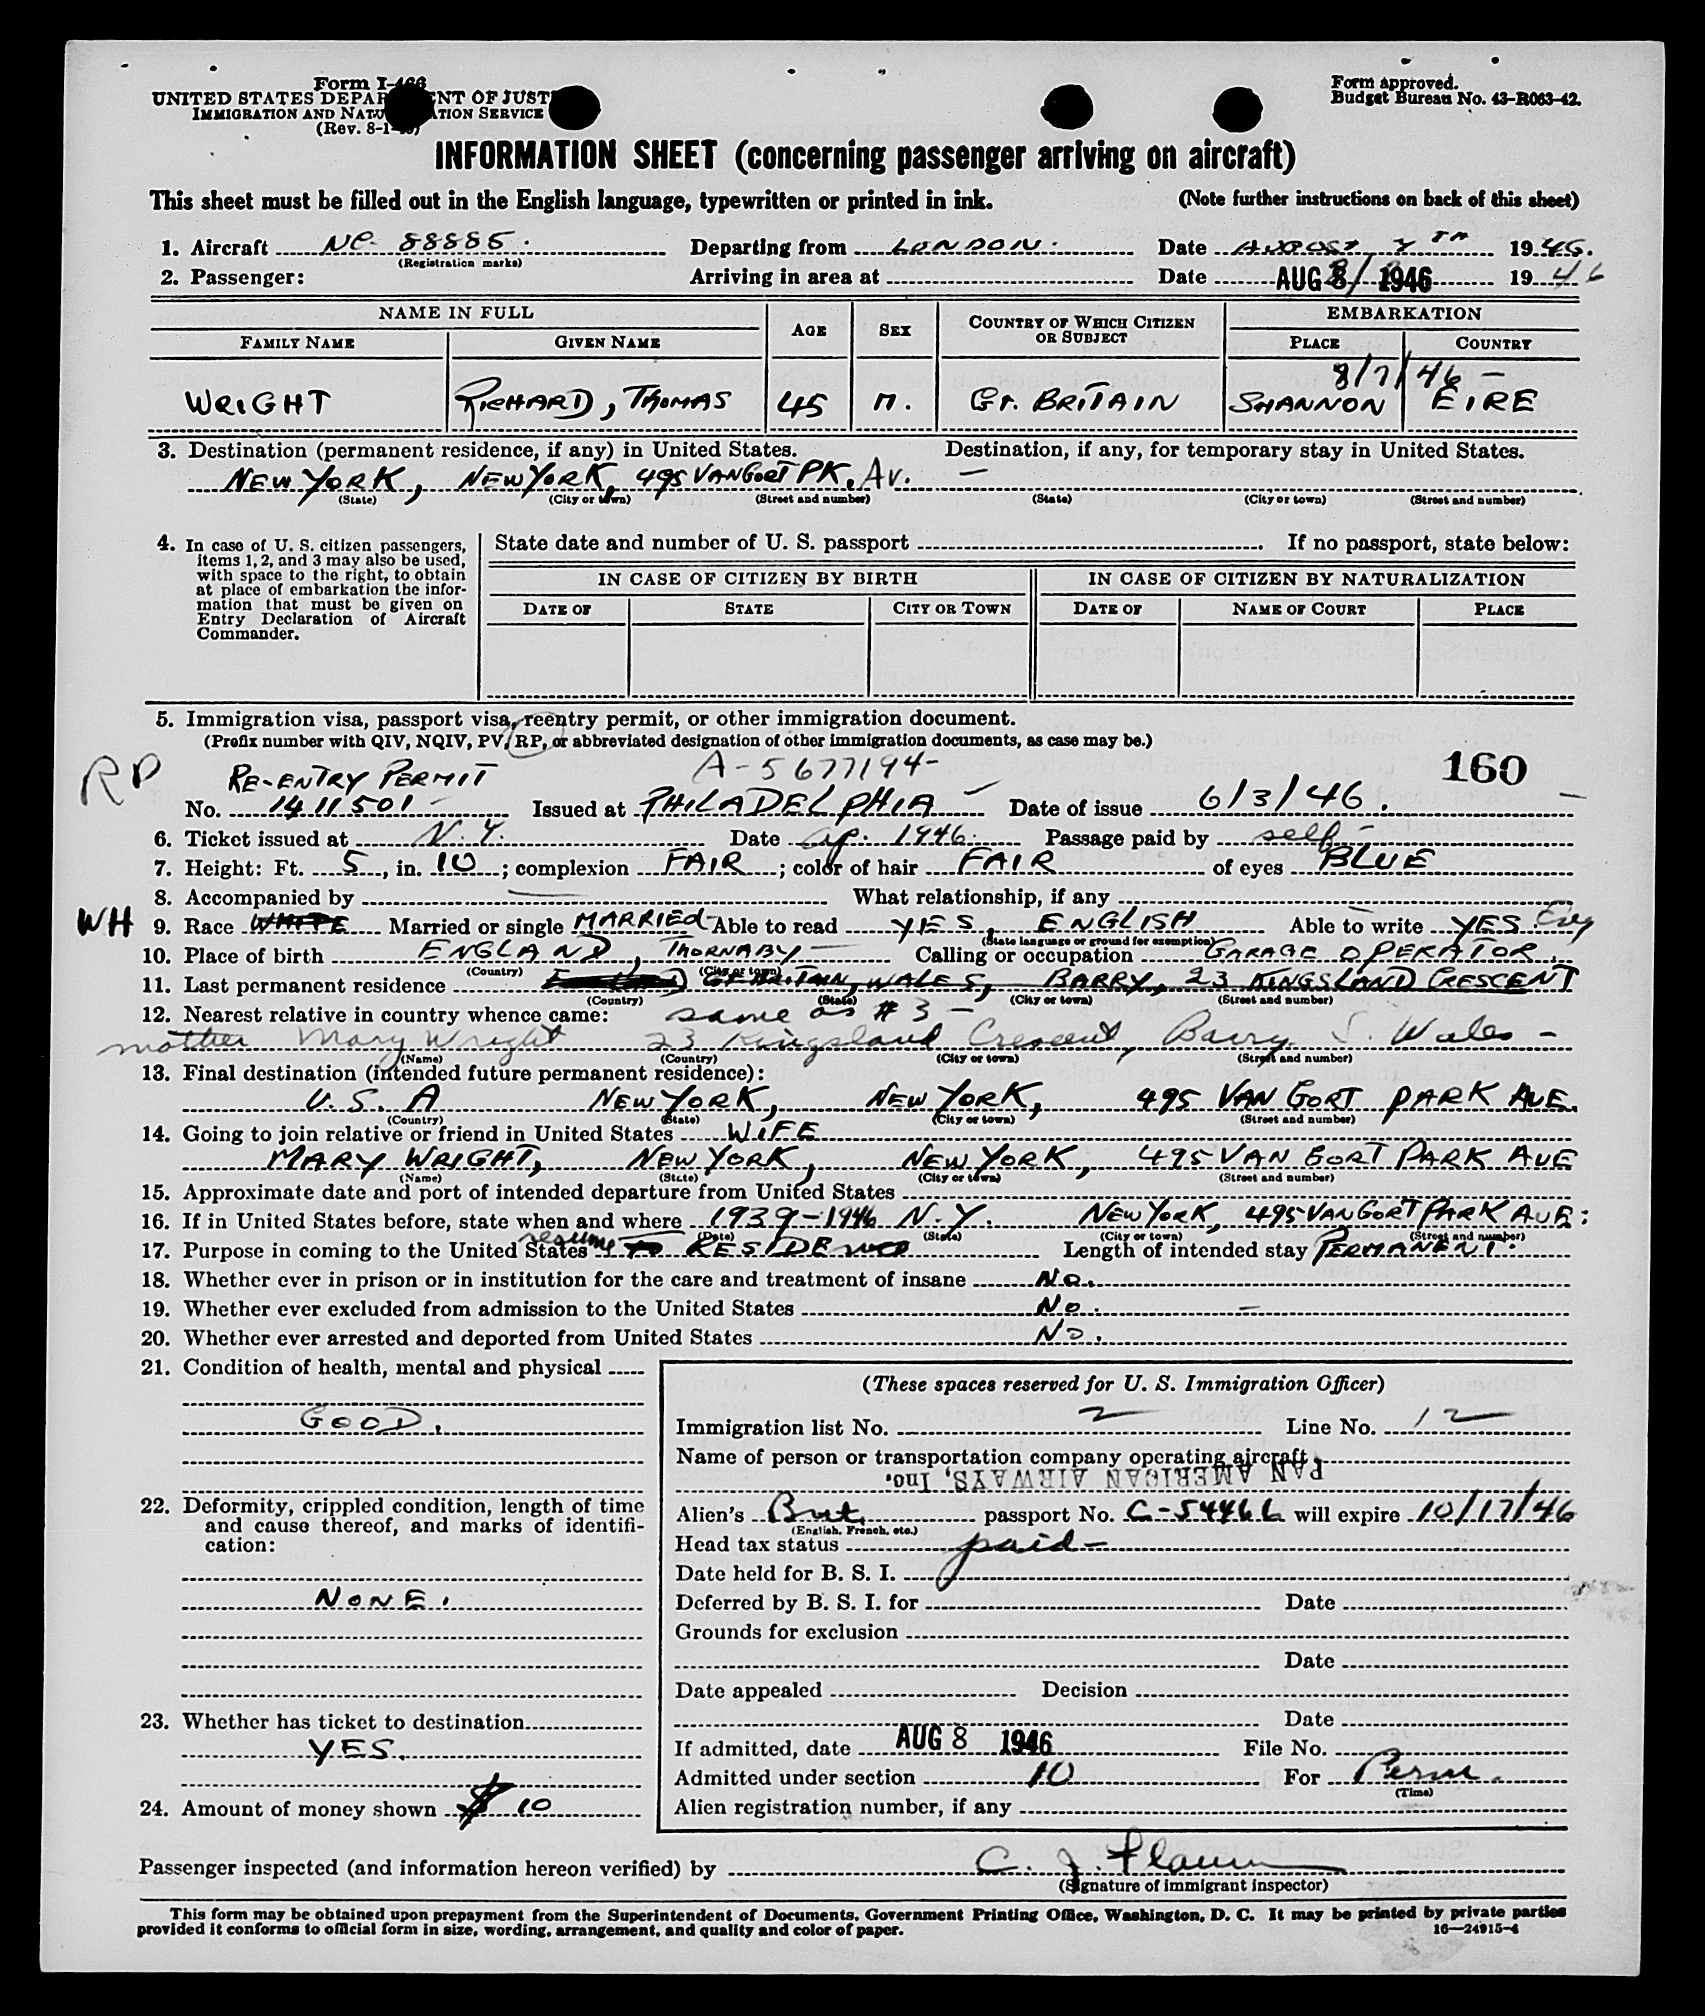 Form I-466
UNITED STATES DEPAR NT OF JUST
IMMIGRATION AND NATU TION SERVICE
(Rev. 8-1- )
Form approved.
Budget Bureau No. 43-R063-42.
INFORMATION SHEET (concerning passenger arriving on aircraft)
This sheet must be filled out in the English language, typewritten or printed in ink. (Note further instructions on back of this sheet)
1. Aircraft NC. 88885. Departing from LONDON. Date AUGUST 7TH 1946.
(Registration marks)
2. Passenger: Arriving in area at Date AUG 8/ 1946 1946
NAME IN FULL AGE SEX COUNTRY OF WHICH CITIZEN OR SUBJECT EMBARKATION
FAMILY NAME GIVEN NAME PLACE COUNTRY
8/7/46 -
WRIGHT RICHARD, THOMAS 45 M. GT. BRITAIN SHANNON EIRE
3. Destination (permanent residence, if any) in United States. Destination, if any, for temporary stay in United States.
NEW YORK, NEW YORK, 495 VAN GORT PK. Av. —
(State) (City or town) (Street and number) (State) (City or town) (Street and number)
4. In case of U. S. citizen passengers, items 1, 2, and 3 may also be used, with space to the right, to obtain at place of embarkation the information that must be given on Entry Declaration of Aircraft Commander.
State date and number of U. S. passport . If no passport, state below:
IN CASE OF CITIZEN BY BIRTH IN CASE OF CITIZEN BY NATURALIZATION
DATE OF STATE CITY OR TOWN DATE OF NAME OF COURT PLACE
5. Immigration visa, passport visa, reentry permit, or other immigration document.
(Prefix number with QIV, NQIV, PV, RP, or abbreviated designation of other immigration documents, as case may be.)
RP RE-ENTRY PERMIT A-5677194- 160
No. 1411501 - Issued at PHILADELPHIA Date of issue 6/3/46.
6. Ticket issued at N.Y. Date Ap. 1946. Passage paid by self-
7. Height: Ft. 5, in. 10; complexion FAIR; color of hair FAIR of eyes BLUE
8. Accompanied by — What relationship, if any
WH 9. Race WHITE Married or single MARRIED Able to read YES, ENGLISH Able to write YES. Eng
(State language or ground for exemption)
10. Place of birth ENGLAND, THORNABY - Calling or occupation GARAGE OPERATOR.
(Country) (City or town)
11. Last permanent residence GT BRITAIN, WALES, BARRY, 23 KINGSLAND CRESCENT
(Country) (State) (City or town) (Street and number)
12. Nearest relative in country whence came: same as # 3 -
mother Mary Wright 23 Kingsland Crescent, Barry, S. Wales -
(Name) (Country) (City or town) (Street and number)
13. Final destination (intended future permanent residence):
U.S.A NEW YORK, NEW YORK, 495 VAN GORT PARK AVE.
(Country) (State) (City or town) (Street and number)
14. Going to join relative or friend in United States WIFE
MARY WRIGHT, NEW YORK, NEW YORK, 495 VAN GORT PARK AVE
(Name) (State) (City or town) (Street and number)
15. Approximate date and port of intended departure from United States
16. If in United States before, state when and where 1939-1946 N.Y. NEW YORK, 495 VAN GORT PARK AVE:
(Date) (State) (City or town) (Street and number)
17. Purpose in coming to the United States resume TO RESIDENCE Length of intended stay PERMANENT.
18. Whether ever in prison or in institution for the care and treatment of insane NO.
19. Whether ever excluded from admission to the United States NO. —
20. Whether ever arrested and deported from United States NO.
21. Condition of health, mental and physical
GOOD.
22. Deformity, crippled condition, length of time and cause thereof, and marks of identification:
NONE.
23. Whether has ticket to destination
YES.
24. Amount of money shown $ 10
(These spaces reserved for U. S. Immigration Officer)
Immigration list No. 2 Line No. 12
Name of person or transportation company operating aircraft
PAN AMERICAN AIRWAYS, Inc.
Alien's Brit. passport No. C-54466 will expire 10/17/46
(English, French, etc.)
Head tax status paid-
Date held for B. S. I.
Deferred by B. S. I. for Date
Grounds for exclusion
Date
Date appealed Decision
Date
If admitted, date AUG 8 1946 File No.
Admitted under section 10 For Perm.
(Time)
Alien registration number, if any
Passenger inspected (and information hereon verified) by C. J.
(Signature of immigrant inspector)
This form may be obtained upon prepayment from the Superintendent of Documents, Government Printing Office, Washington, D. C. It may be printed by private parties
provided it conforms to official form in size, wording, arrangement, and quality and color of paper. 16—24915-4